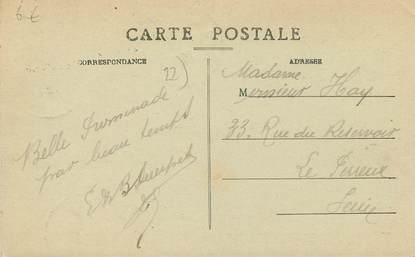 6 €
CARTE POSTALE
CORRESPONDANCE
ADRESSE
22
Madame
Monsieur Hay
33 Rue du Reservoir
Le Perreux
Seine
Belle Promenade
par beau temps